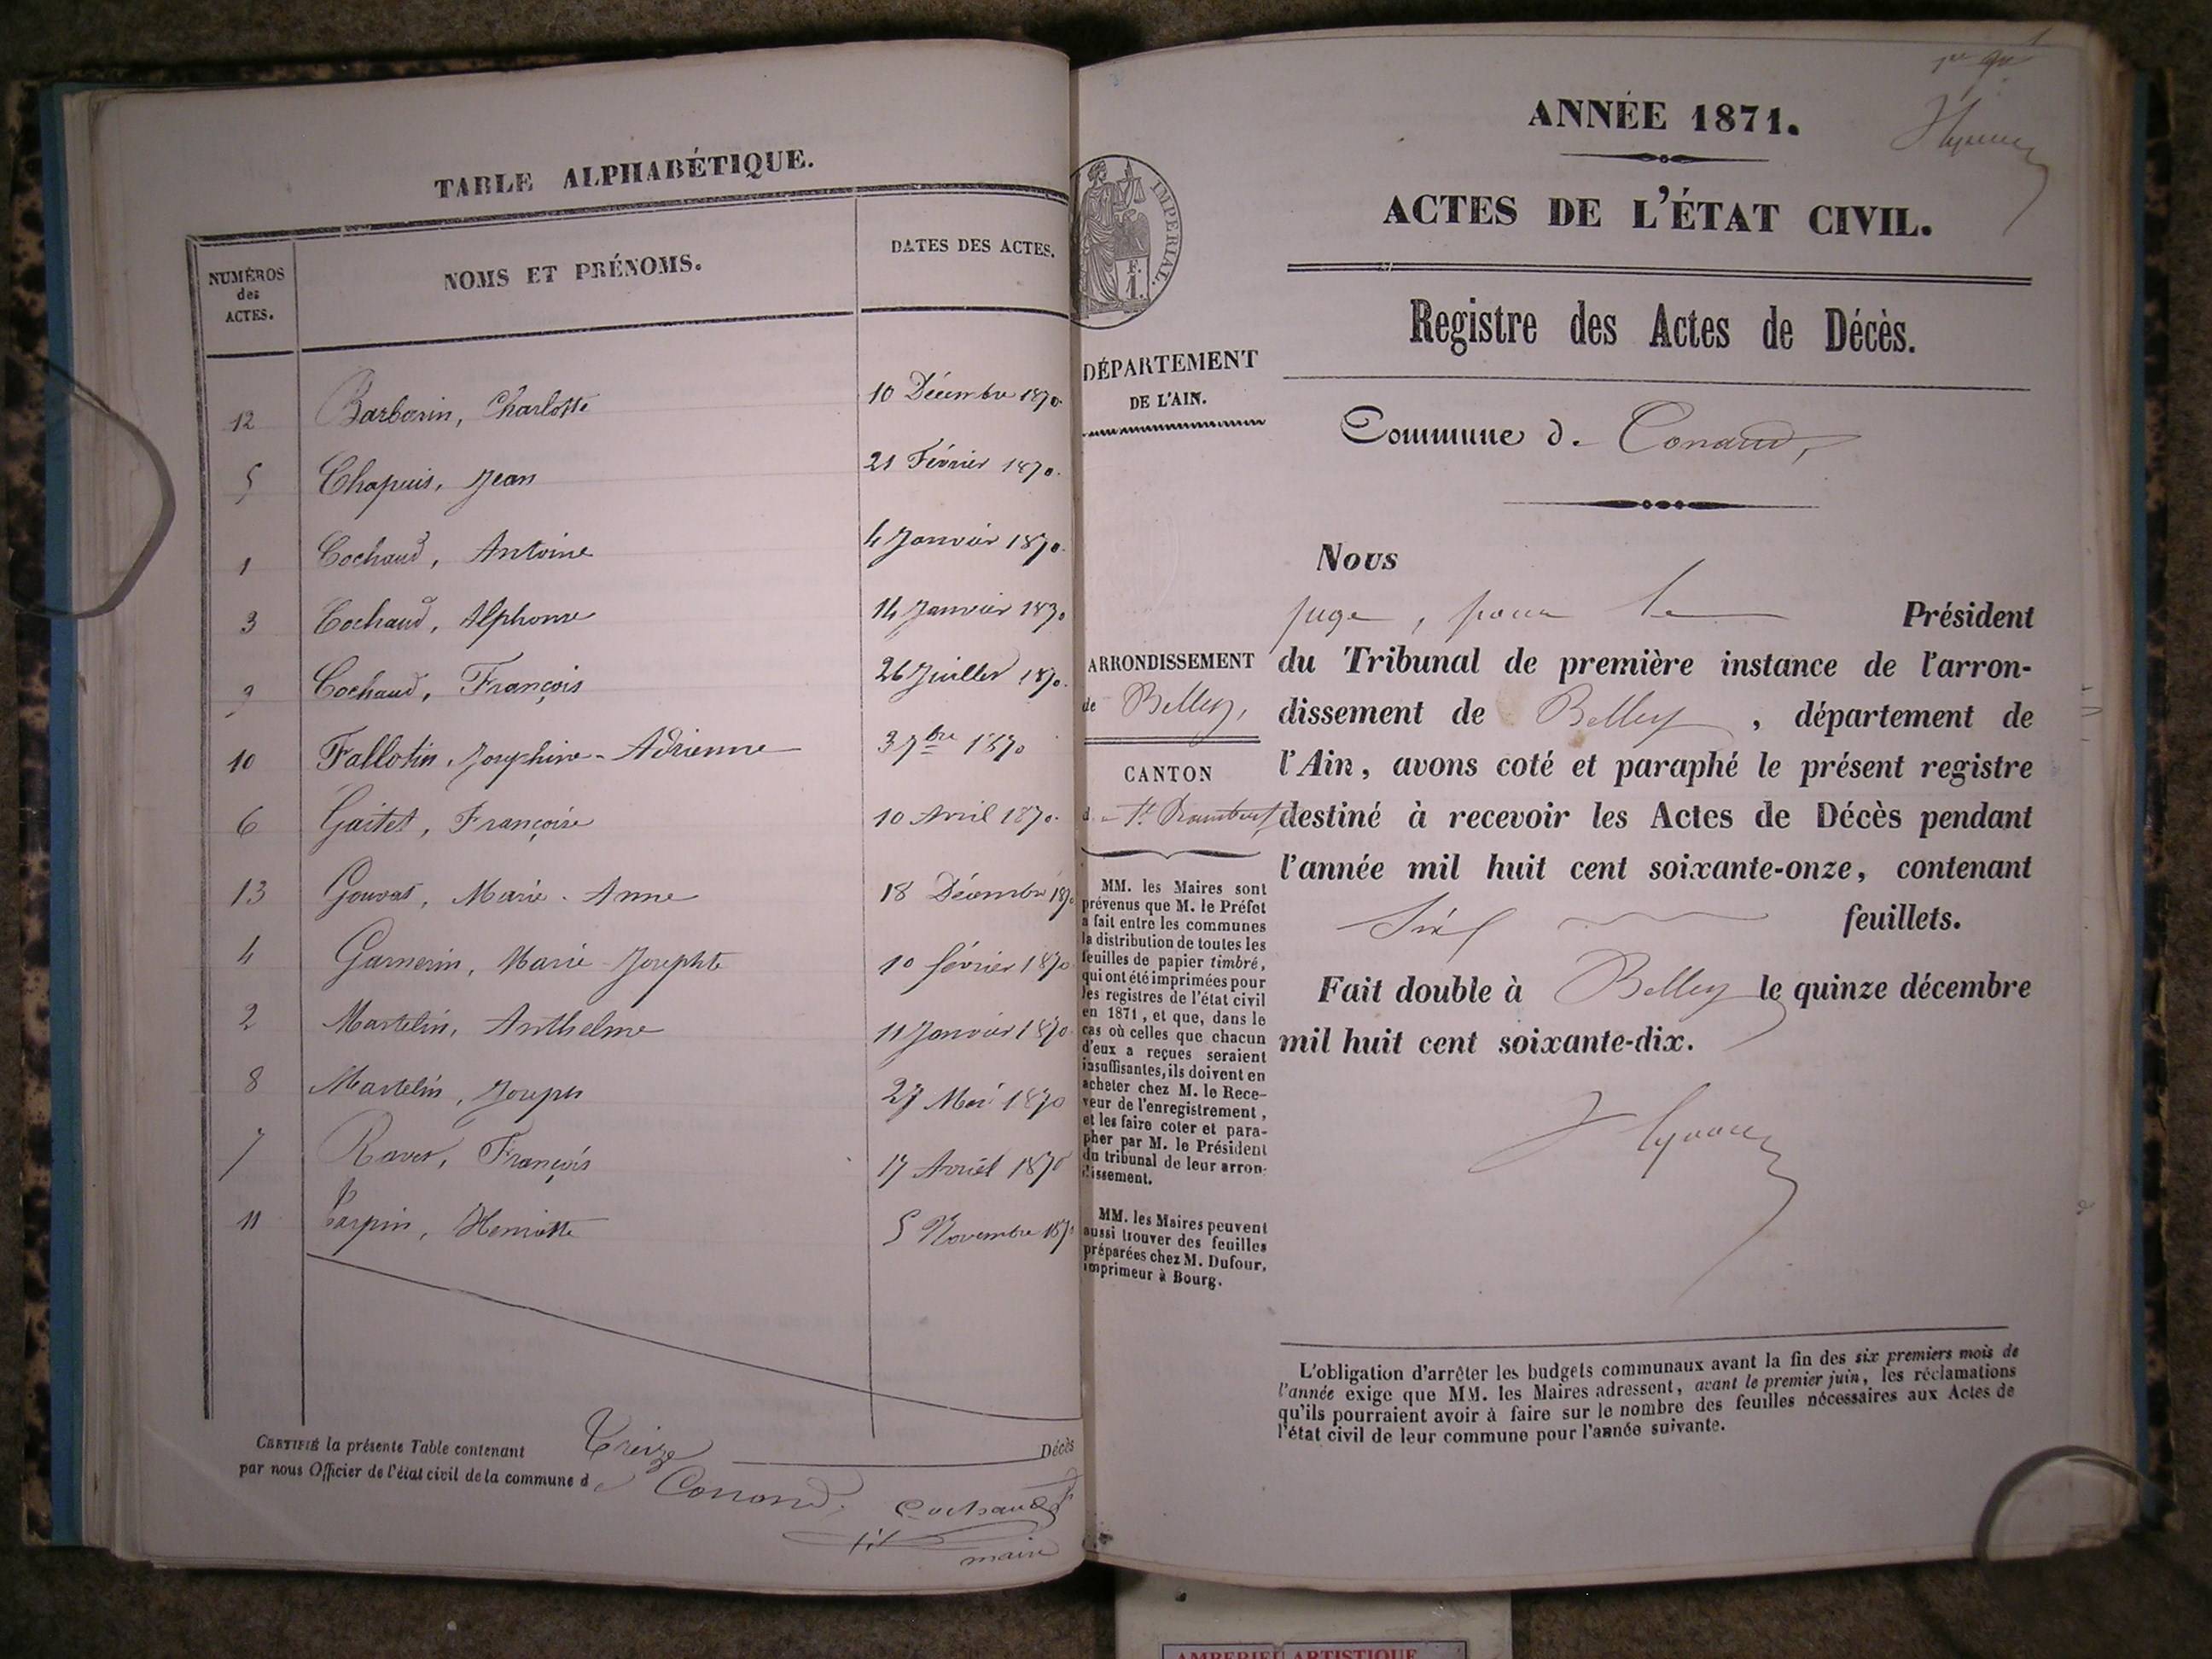 TABLE ALPHABÉTIQUE.
NUMÉROS
des
ACTES.
NOMS ET PRÉNOMS.
DATES DES ACTES.
12 Barbarin, Charlotte 10 Décembre 1870.
5 Chapuis, Jean 21 Février 1870.
1 Cochaud, Antoine 4 Janvier 1870.
3 Cochaud, Alphonse 14 Janvier 1870
9 Cochaud, François 26 Juillet 1870.
10 Fallotin, Josephine-Adrienne 3 7bre 1870
6 Gaitet, Françoise 10 Avril 1870.
13 Gouvat, Marie-Anne 18 Décembre 1870
4 Garnerin, Marie-Josephte 10 février 1870
2 Martelin, Anthelme 11 Janvier 1870
8 Martelin, Joseph 27 Mai 1870
7 Ravet, François 17 Avril 1870
11 Tarpin, Henriette 5 Novembre 1870
CERTIFIÉ la présente Table contenant Treize Décès
par nous Officier de l'état civil de la commune de Conand,
Cochaud
maire
ANNÉE 1871.
ACTES DE L'ÉTAT CIVIL.
Registre des Actes de Décès.
IMPÉRIAL.
F.
1.
DÉPARTEMENT
DE L'AIN.
Commune d. Conand,
Nous
juge, pour le Président
ARRONDISSEMENT
de Belley,
CANTON
d. St Rambert
du Tribunal de première instance de l'arron-
dissement de Belley, département de
l'Ain, avons coté et paraphé le présent registre
destiné à recevoir les Actes de Décès pendant
l'année mil huit cent soixante-onze, contenant
Six feuillets.
Fait double à Belley le quinze décembre
mil huit cent soixante-dix.
MM. les Maires sont
prévenus que M. le Préfet
a fait entre les communes
la distribution de toutes les
feuilles de papier timbré,
qui ont été imprimées pour
les registres de l'état civil
en 1871, et que, dans le
cas où celles que chacun
d'eux a reçues seraient
insuffisantes, ils doivent en
acheter chez M. le Rece-
veur de l'enregistrement,
et les faire coter et para-
pher par M. le Président
du tribunal de leur arron-
dissement.
MM. les Maires peuvent
aussi trouver des feuilles
préparées chez M. Dufour,
imprimeur à Bourg.
L'obligation d'arrêter les budgets communaux avant la fin des six premiers mois de
l'année exige que MM. les Maires adressent, avant le premier juin, les réclamations
qu'ils pourraient avoir à faire sur le nombre des feuilles nécessaires aux Actes de
l'état civil de leur commune pour l'année suivante.
AMBERIEU ARTISTIQUE